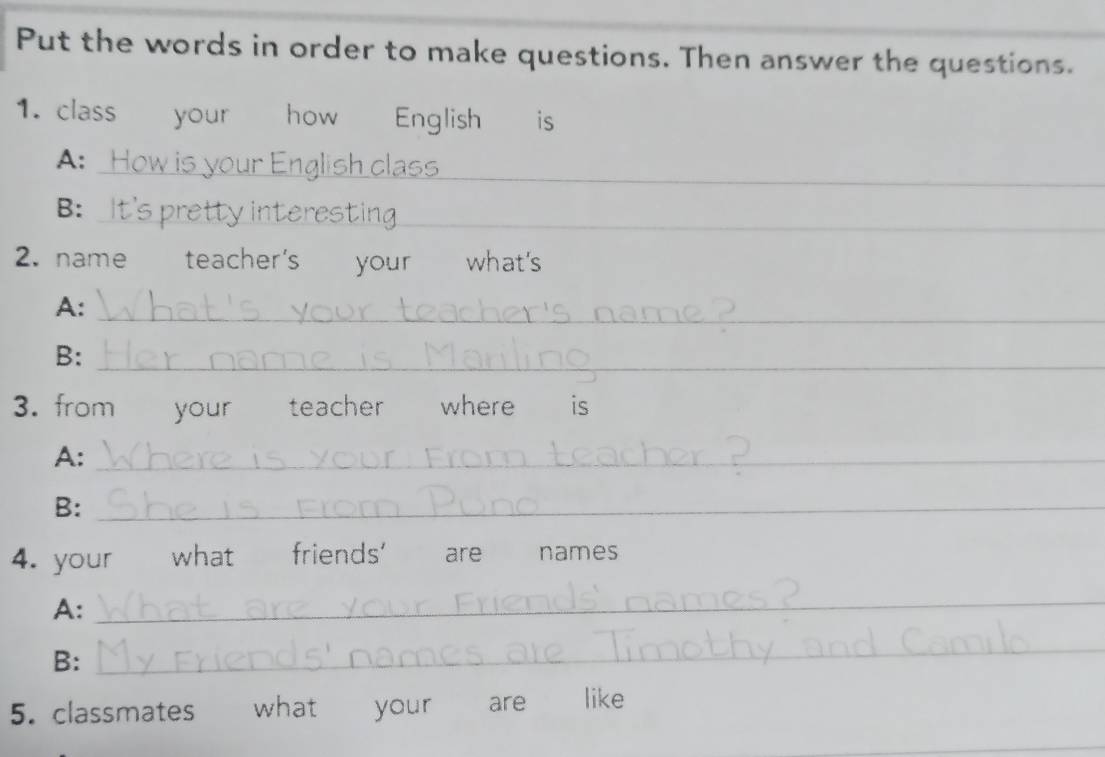 Put the words in order to make questions. Then answer the questions.
1. class your how English is
A: How is your English class
B: It's pretty interesting
2. name teacher's your what's
A: What's your teacher's name?
B: Her name is Mariling
3. from your teacher where is
A: Where is your From teacher?
B: She is From Puno
4. your what friends' are names
A: What are your Friends' names?
B: My Friends' names are Timothy and Camilo
5. classmates what your are like